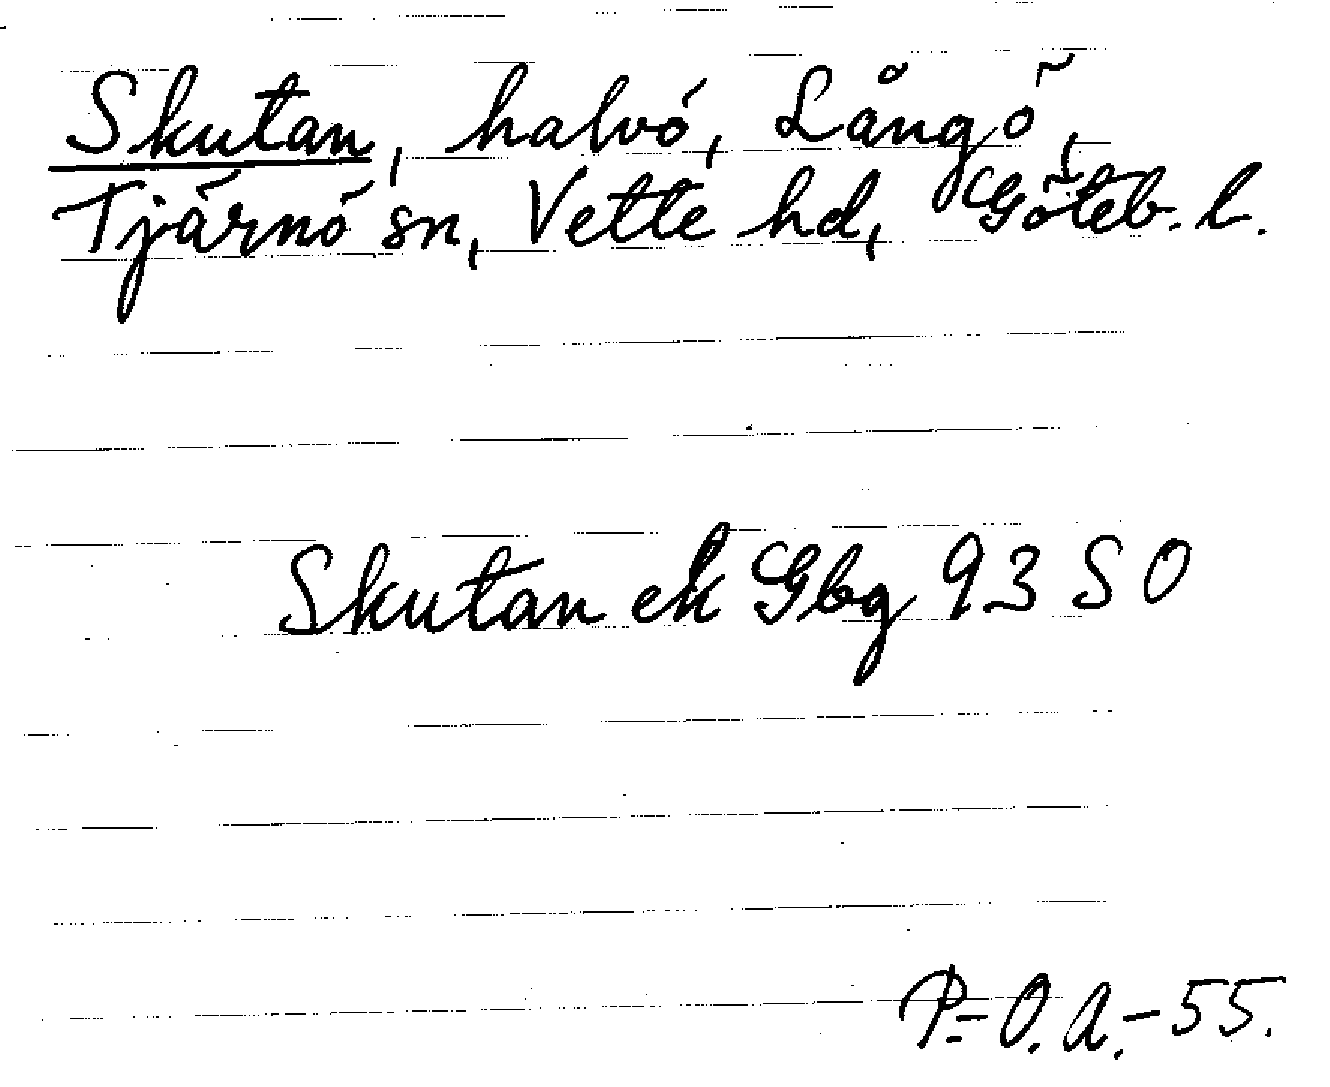 Skutan, halvö, Långö,
Tjärnö sn, Vette hd, Göteb. l.
Skutan ek Gbg 93 SO
P-O.A.-55.